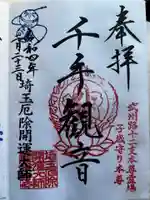 奉拝
武州路十二支本尊霊場
子歳守り本尊
千手観音
令和四年
月二十三日
埼玉厄除開運大師